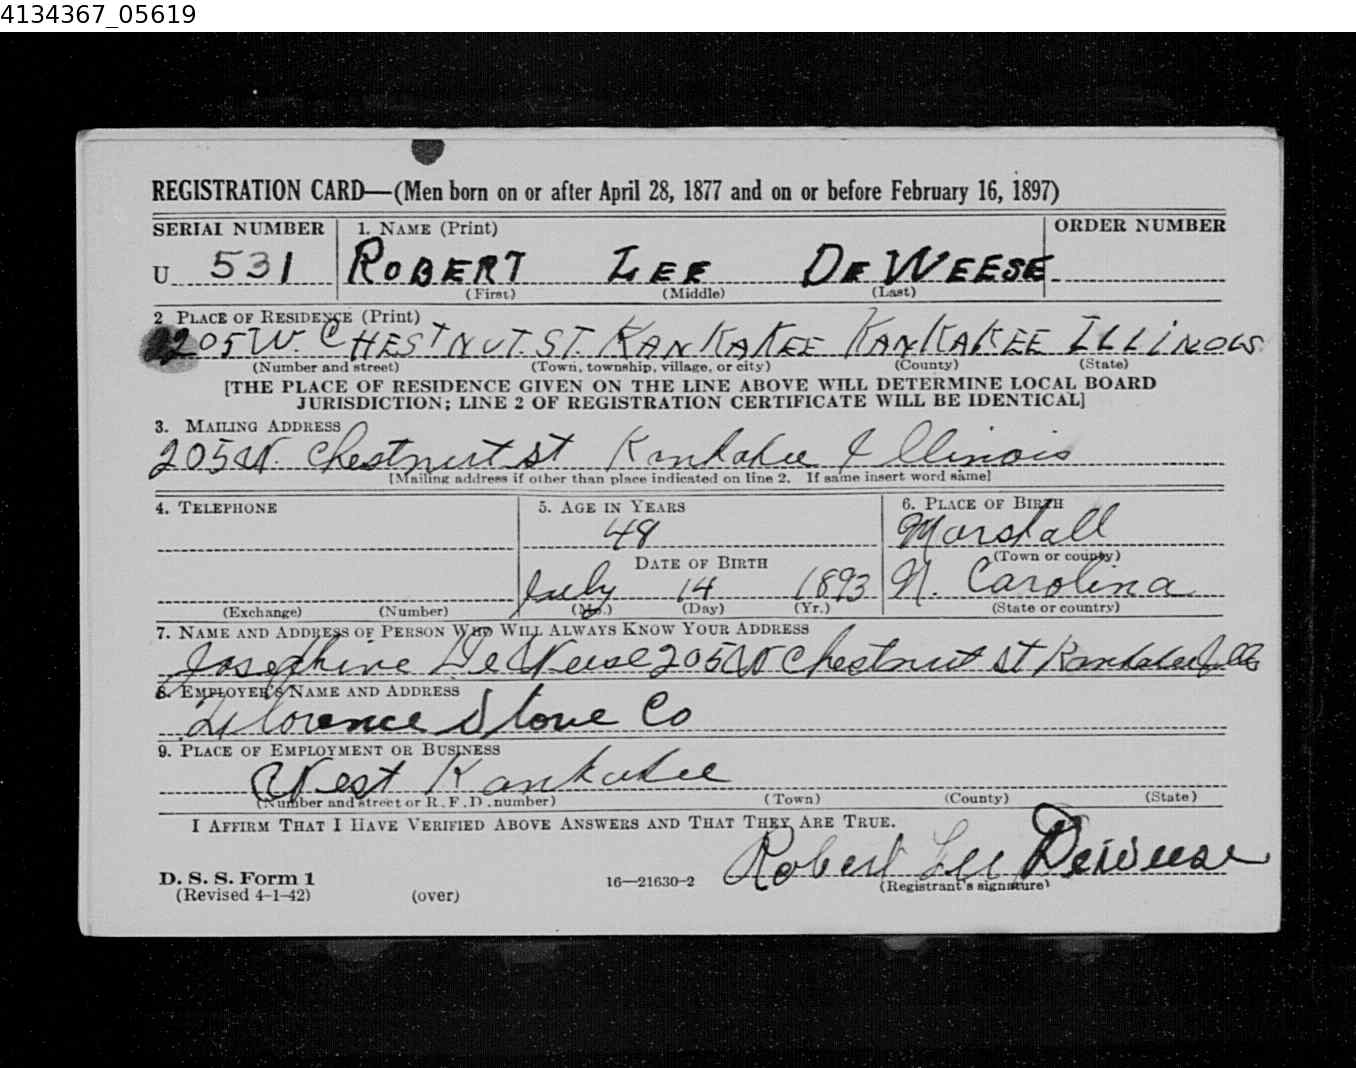 4134367_05619
REGISTRATION CARD—(Men born on or after April 28, 1877 and on or before February 16, 1897)
SERIAL NUMBER 1. NAME (Print) ORDER NUMBER
U 531 ROBERT LEE DEWEESE
(First) (Middle) (Last)
2 PLACE OF RESIDENCE (Print)
205 W. CHESTNUT. ST. KANKAKEE KANKAKEE ILLINOIS
(Number and street) (Town, township, village, or city) (County) (State)
[THE PLACE OF RESIDENCE GIVEN ON THE LINE ABOVE WILL DETERMINE LOCAL BOARD
JURISDICTION; LINE 2 OF REGISTRATION CERTIFICATE WILL BE IDENTICAL]
3. MAILING ADDRESS
205 W. Chestnut st Kankakee Illinois
[Mailing address if other than place indicated on line 2. If same insert word same]
4. TELEPHONE 5. AGE IN YEARS 6. PLACE OF BIRTH
48 Marshall
DATE OF BIRTH (Town or county)
July 14 1893 N. Carolina
(Exchange) (Number) (Mo.) (Day) (Yr.) (State or country)
7. NAME AND ADDRESS OF PERSON WHO WILL ALWAYS KNOW YOUR ADDRESS
Josephine DeWeese 205 W Chestnut St Kankakee Ills
8. EMPLOYER'S NAME AND ADDRESS
Florence Stove Co
9. PLACE OF EMPLOYMENT OR BUSINESS
West Kankakee
(Number and street or R. F. D. number) (Town) (County) (State)
I AFFIRM THAT I HAVE VERIFIED ABOVE ANSWERS AND THAT THEY ARE TRUE.
Robert Lee Deweese
D. S. S. Form 1 16—21630-2 (Registrant's signature)
(Revised 4-1-42) (over)